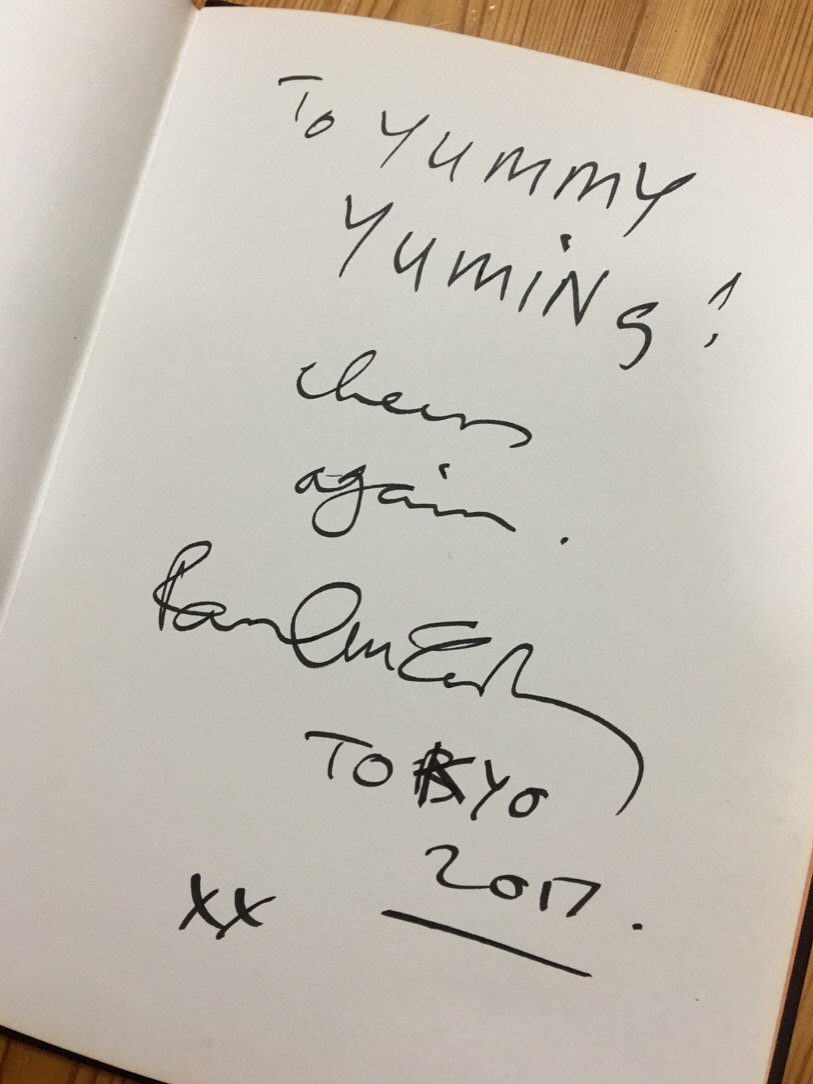 To YUMMY
YUMING!
cheers
again.
Paul McCartney
TOKYO
2017.
xx